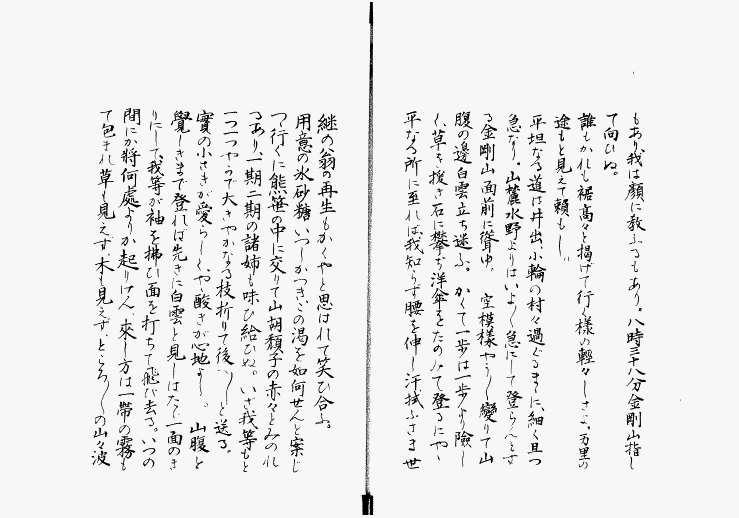 もあり我は顔に教ふるもあり。八時三十八分金剛山指し
て向ひぬ。
誰もかれも裾高々と掲げて行く様の軽々しさよ。万里の
途もと見えて頼もし。
平坦なる道は井出、小輪の村々過ぐるまゝに、細く且つ
急なり。山麓水野よりはいよ〳〵急にして登らんとす
る金剛山面前に聳ゆ。　空模様やう〳〵變りて山
腹の邊白雲立ち迷ふ。かくて一歩は一歩より險し
く、草を援き石に攀ぢ洋傘をたのみて登るにやゝ
平なる所に至れば我知らず腰を伸し汗拭ふさま世
継の翁の再生もかくやと思はれて笑ひ合ふ。
用意の氷砂糖いつしかつき、この渇を如何せんと案じ
つゝ行くに熊笹の中に交りて山胡頽子の赤々とみのれ
るあり、一期二期の諸姉も味ひ給ひぬ。いざ我等もと
一つ一つやうで大きやかなる枝折りて後へ〳〵と送る。
實の小さきが愛らしくや酸きが心地よし。　山腹と
覺しきまで登れば先きに白雲と見しはたゞ一面のき
りにして、我等が袖を拂ひ面を打ちて飛び去る。いつの
間にか將何處よりか起りけん、來し方は一帶の霧も
て包まれ草も見えず、木も見えず、ところ〴〵の山々波